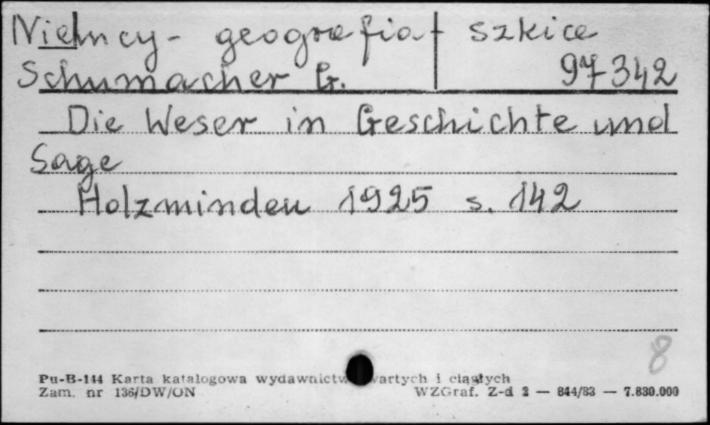 Niemcy - geografia + szkice
Schumacher G. 97342
Die Weser in Geschichte und
Sage
Holzminden 1925 s. 142
8
Pu-B-144 Karta katalogowa wydawnictw zwartych i ciągłych
Zam. nr 136/DW/ON WZGraf. Z-d 2 — 844/83 — 7.830.000